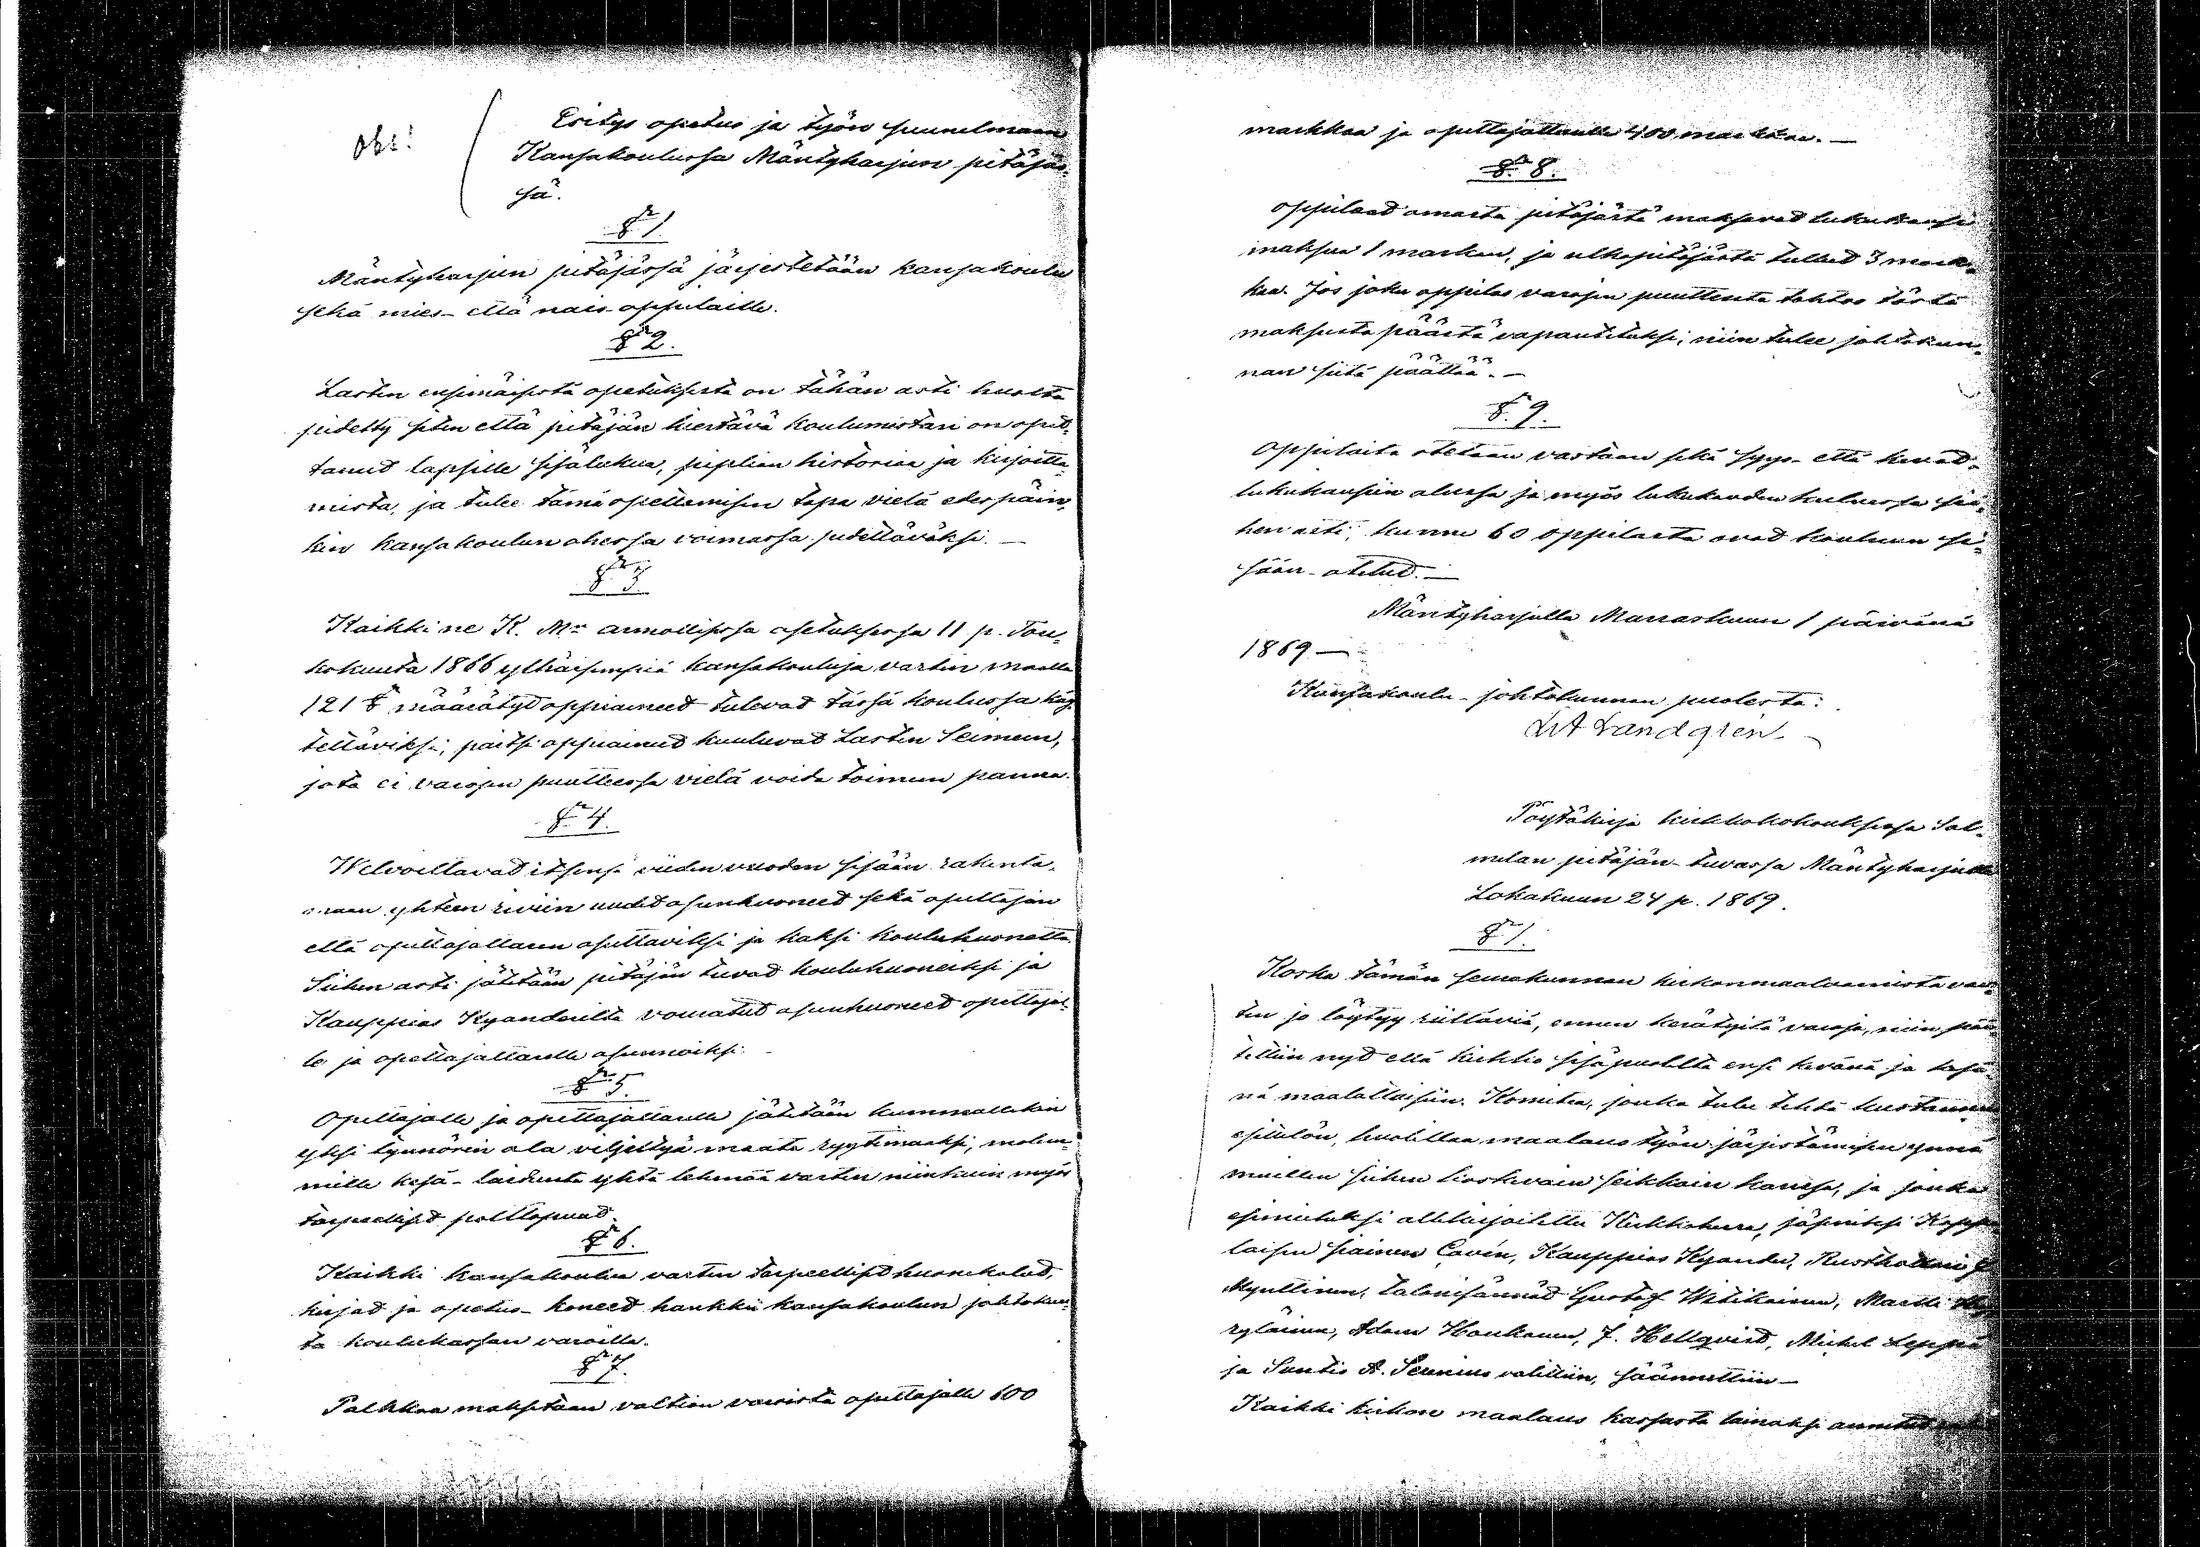 Obs!
Esitys opetus ja työn suunnelmaan
Kansakoulussa Mäntyharjun pitäjäs-
sä.
§ 1.
Mäntyharjun pitäjässä järjestetään kansakoulu
sekä mies- että nais-oppilaille.
§ 2.
Lasten ensimäisestä opetuksesta on tähän asti huolta
pidetty siten että pitäjän kiertävä koulumestari on opet-
tanut lapsille sisälukua, piplian historiaa ja kirjoitta-
mista, ja tulee tämä opettamisen tapa vielä edespäin-
kin kansakoulun ohessa voimassa pidettäväksi. —
§ 3.
Kaikki ne K. M:n armollisessa asetuksessa 11 p. Tou-
kokuuta 1866 ylhäisimpiä kansakouluja varten maalla
121 § määrätyd oppiaineed tulevad tässä koulussa käy-
tettäviksi, paitsi oppiaineed kuuluvad Lasten Seimeen,
jota ei varojen puutteessa vielä voida toimeen panna.
§ 4.
Welvoittavad itsensä viiden vuoden sisään rakenta-
maan yhteen riviin uudet asuinhuoneed sekä opettajan
että opettajattaren asuttaviksi ja kaksi kouluhuonetta.
Siihen asti jätetään pitäjän tuvad kouluhuoneiksi ja
Kauppias Kyanderilta vouratud asuinhuoneed opettajal-
le ja opettajattarelle asunnoiksi.
§ 5.
Opettajalle ja opettajattarelle jätetään kummallekin
yksi tynnörin ala viljeltyä maata ryytimaaksi, molem-
mille kesä-laidunta yhtä lehmää varten niinkuin myös
tarpeellised polttopuud.
§ 6.
Kaikki kansakoulua varten tarpeellised huonekalud,
kirjad ja opetus-koneed hankkii kansakoulun johtokun-
ta koulukassan varoilla.
§ 7.
Palkkaa maksetaan valtion varoista opettajalle 600
markkaa ja opettajattarelle 400 markkaa. —
§ 8.
Oppilaad omasta pitäjästä maksavad lukukausi
maksua 1 markan, ja ulkopitäjästä tulleed 3 mark-
kaa. Jos joku oppilas varojen puutteesta tahtoo tästä
maksusta päästä vapautetuksi, niin tulee johtokun-
nan siitä päättää. —
§ 9.
Oppilaita otetaan vastaan sekä syys- että kevät-
lukukausien alussa ja myös lukukauden kuluessa sii-
hen asti, kunne 60 oppilasta ovad kouluun si-
sään-otetud. —
Mäntyharjulla Marraskuun 1 päivänä
1869 —
Kansakoulu-johtokunnan puolesta:
Landgrén
Pöytäkirja kirkkokokouksessa Sal-
melan pitäjän-tuvassa Mäntyharjulla
Lokakuun 24 p. 1869.
§ 1.
Koska tämän seurakunnan kirkonmaalaamista var-
ten jo löytyy riittäviä, ennen kerätyitä varoja, niin pää-
tettiin nyd että kirkko sisäpuolelta ensi kevänä ja kesä-
nä maalattaisiin. Komitea, jonka tulee tehdä kustannus
esittelön, huolittaa maalaus työn järjestämisen ynnä
muitten siihen koskevain seikkain kanssa, ja jonka
esimieheksi allekirjoitettu Kirkkoherra, jäseniksi Kappa-
laisen siainen Cavén, Kauppias Kyander, Rusthollari
Mynttinen, talonisännäd Gustaf Witikainen, Matti
ryläinen, Adam Honkanen, J. Hellqvist, Michel Leppä
ja Suntio A. Seunius valittiin, säännettiin —
Kaikki kirkon maalaus kassasta lainaksi annetud